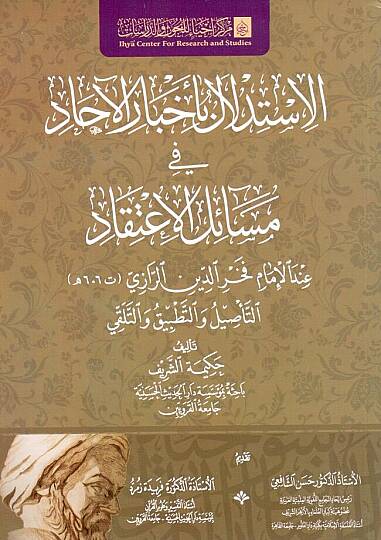 مركز إحياء للبحوث والدراسات
Ihyā Center For Research and Studies
الاستدلال بأخبار الآحاد
في
مسائل الاعتقاد
عند الإمام فخر الدين الرازي (ت ٦٠٦هـ)
التأصيل والتطبيق والتلقي
تأليف
حكيمة الشريف
باحثة بمؤسسة دار الحديث الحسنية
جامعة القرويين
تقديم
الأستاذ الدكتور حسن الشافعي
الأستاذة الدكتورة فريدة زمرد